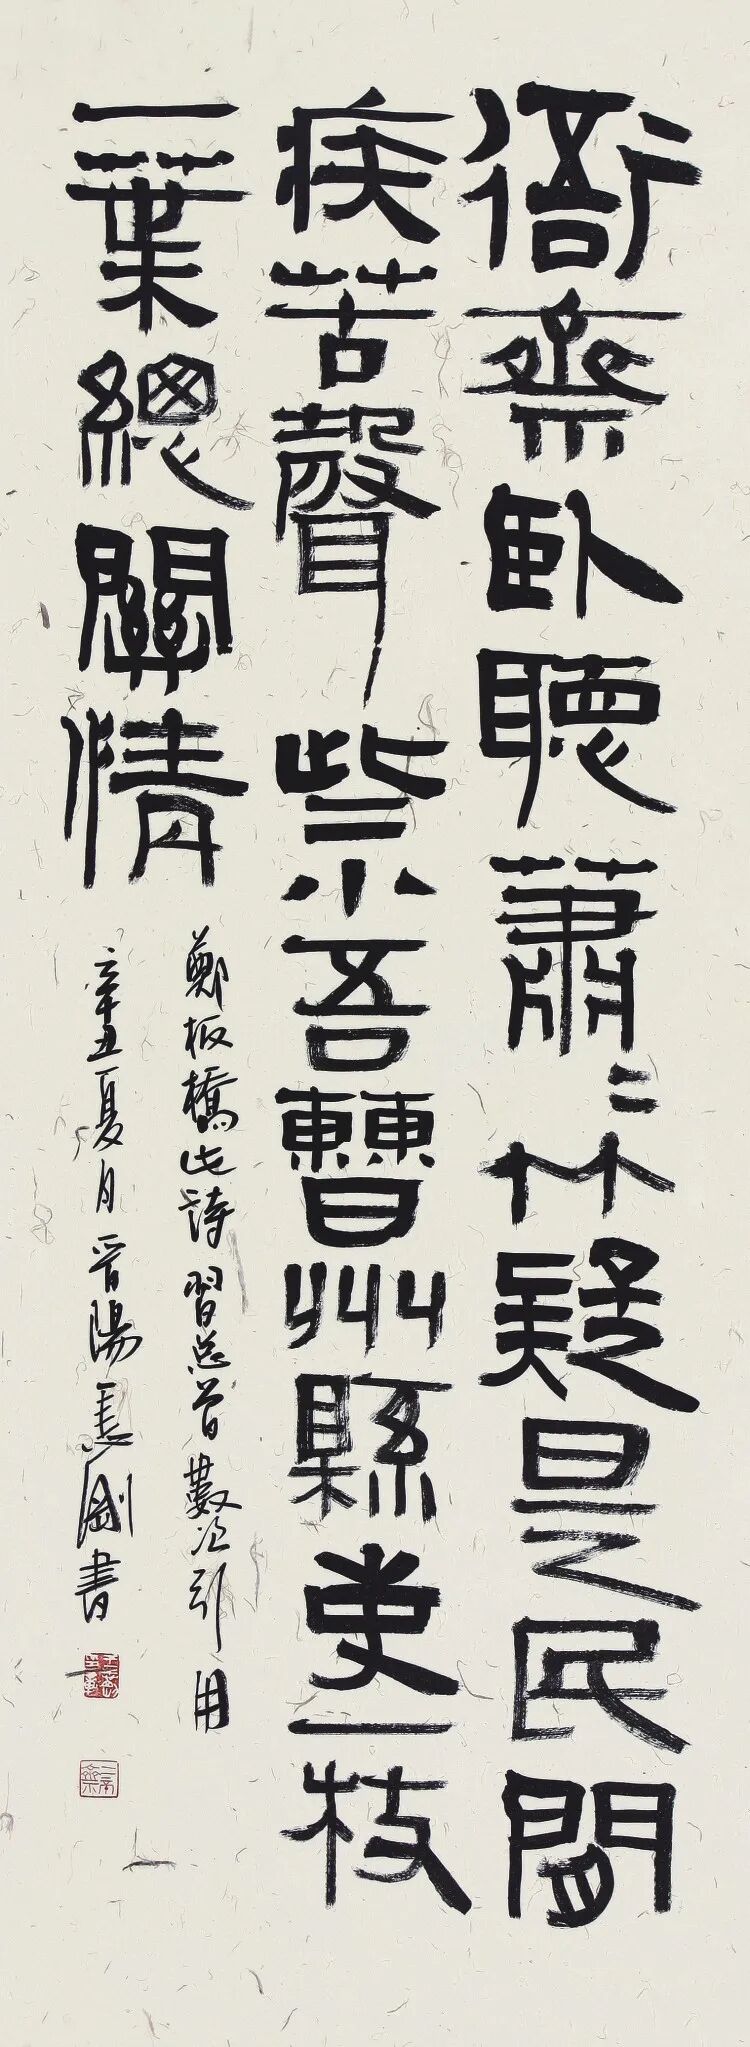 衙齋卧聽蕭〻竹疑是民間
疾苦聲些小吾曹州縣吏一枝
一葉總關情
鄭板橋此詩習总曾數次引用
辛丑夏月晉陽王志剛書